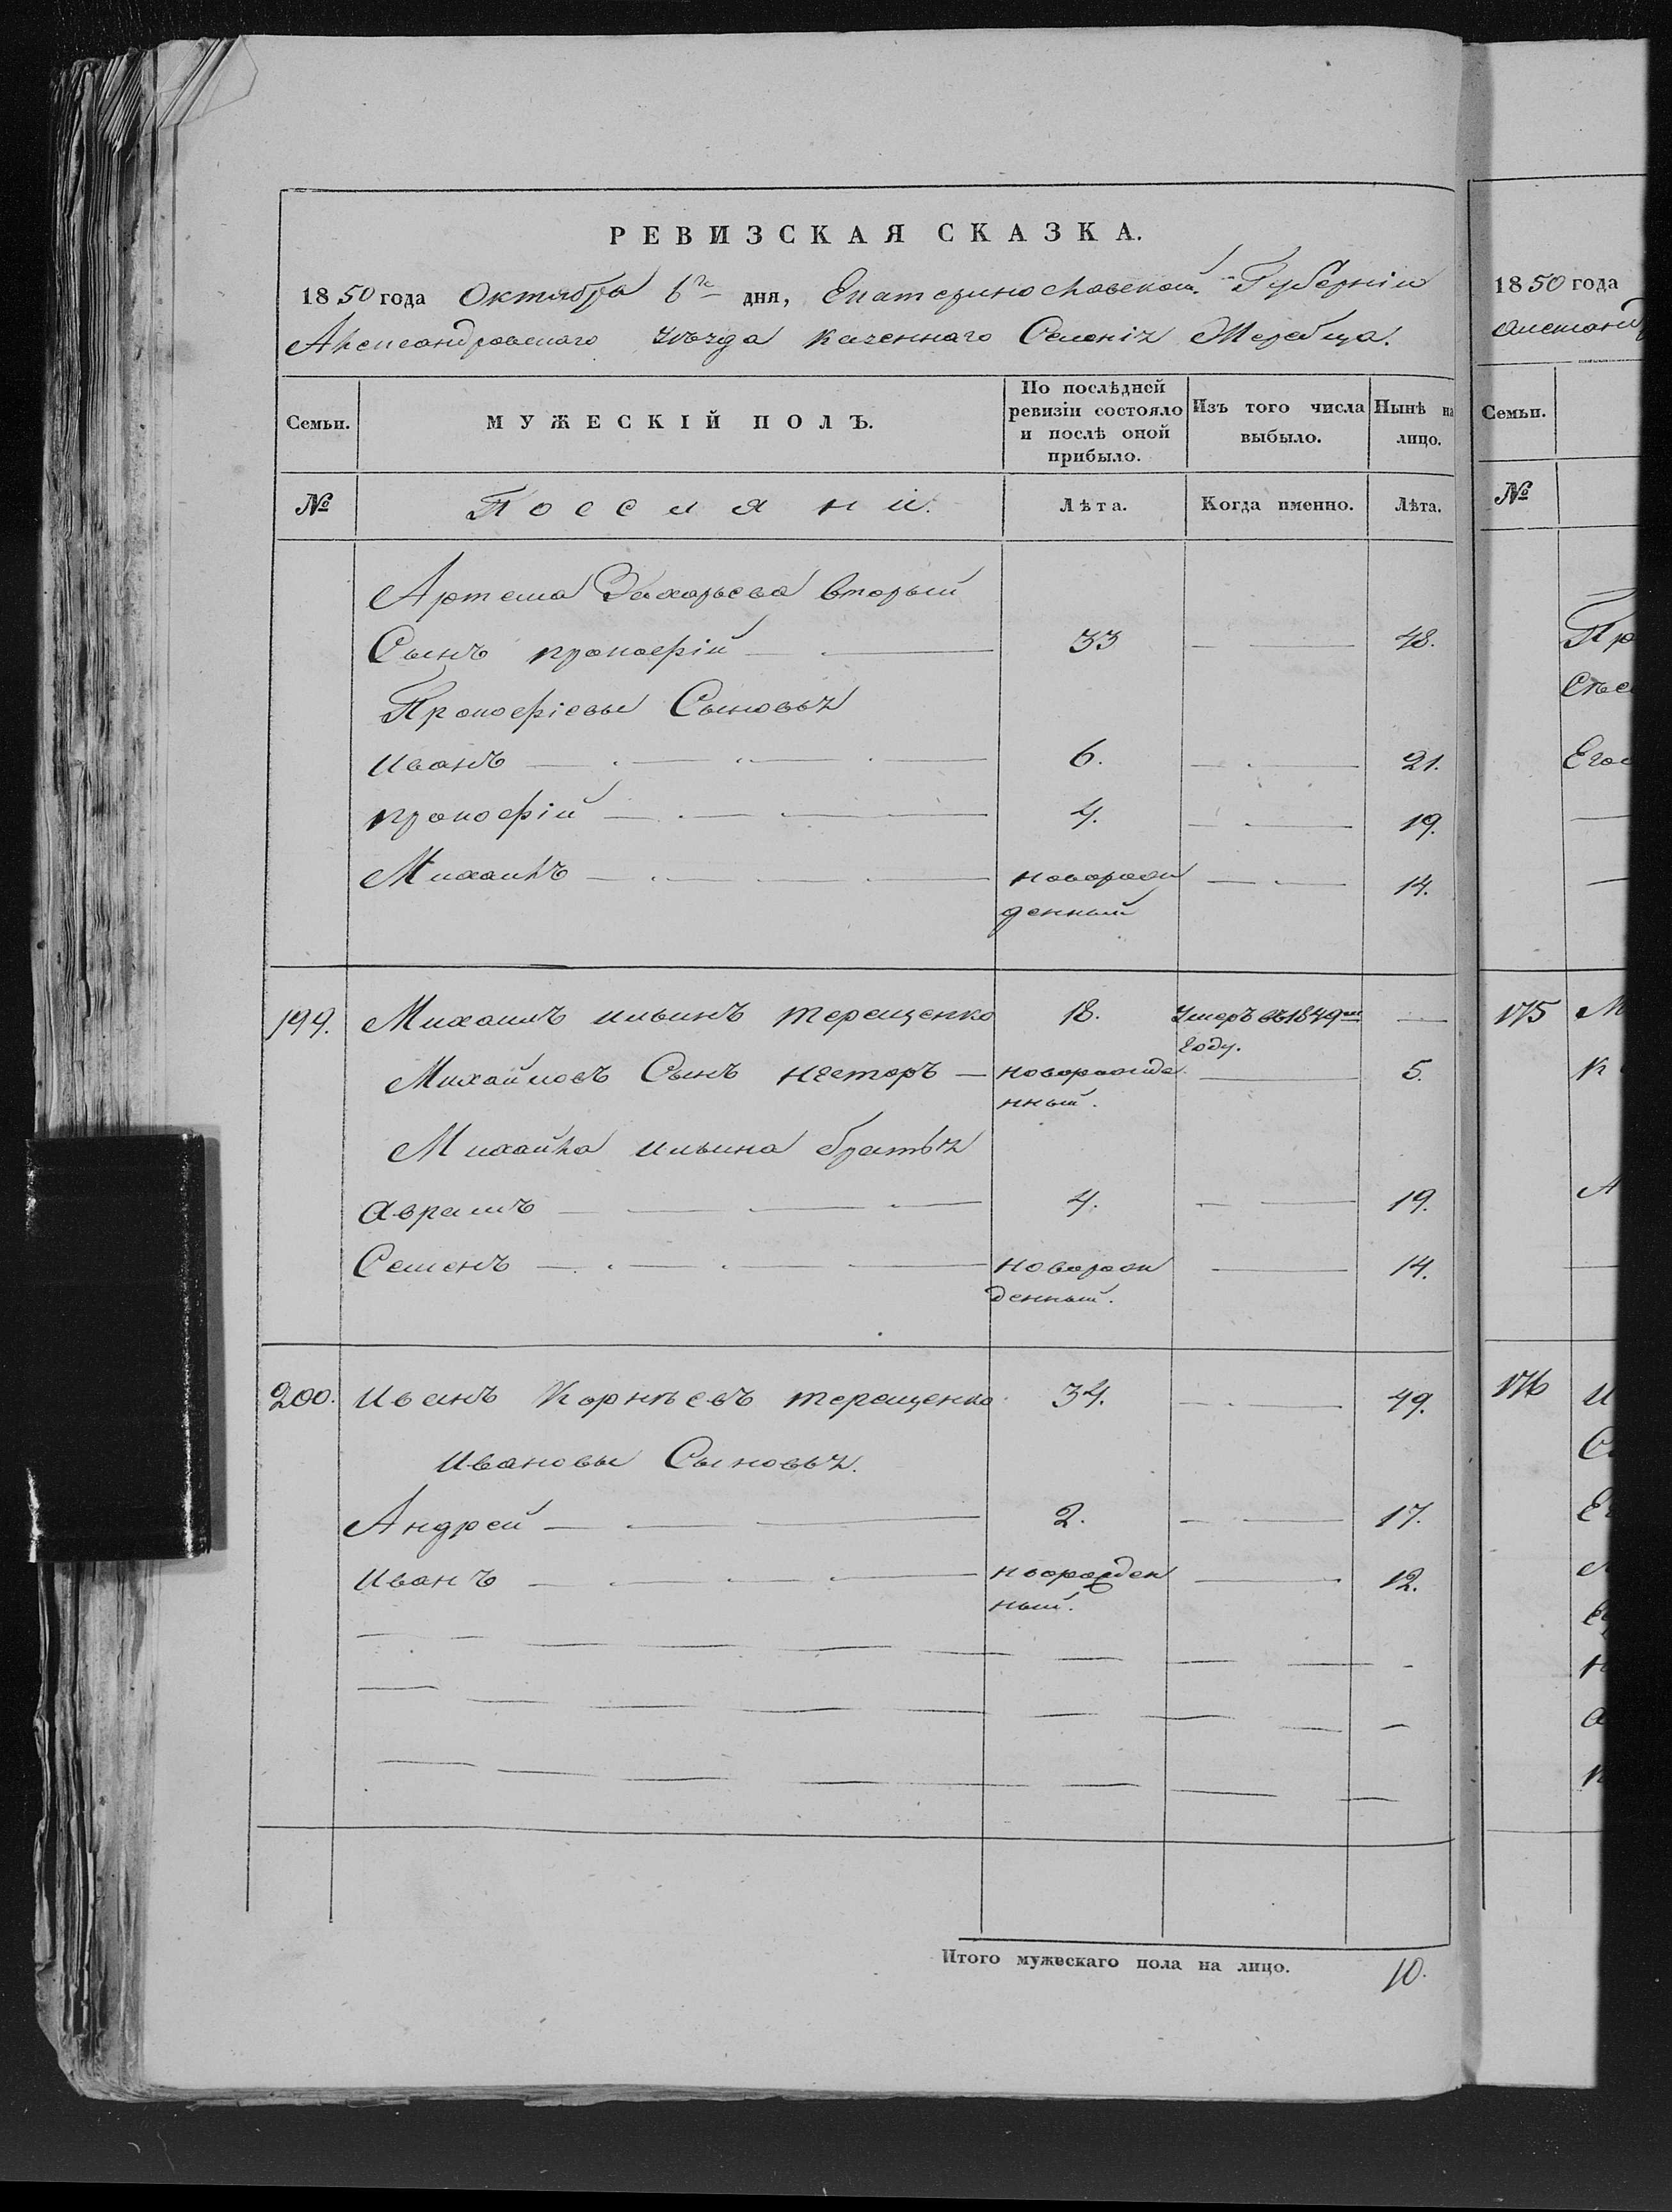 РЕВИЗСКАЯ СКАЗКА.
1850 года Октября 6го дня, Екатеринославской Губерніи
Александровскаго уѣзда казеннаго Селенія Жеребца.
Семьи. МУЖЕСКІЙ ПОЛЪ. По послѣдней ревизіи состояло и послѣ оной прибыло. Изъ того числа выбыло. Нынѣ на лицо.
№ Поселяни. Лѣта. Когда именно. Лѣта.
Артема Захарьева вторый
Сынъ прокофій 33 48.
Прокофіевы Сыновья
иванъ 6. 21.
прокофій 4. 19.
Михаилъ новорож 14.
денный
199. Михаилъ ильинъ терещенко 18. Умеръ въ 1849м
году.
Михайловъ Сынъ несторъ новорожде 5.
нный.
Михайла ильина братья
аврамъ 4. 19.
Семенъ новорож 14.
денный.
200. иванъ Корнѣевъ терещенко 34. 49.
ивановы Сыновья.
Андрей 2. 17.
иванъ нворожден 12.
ный.
Итого мужескаго пола на лицо. 10.
1850 года
Семьи.
№
175
176